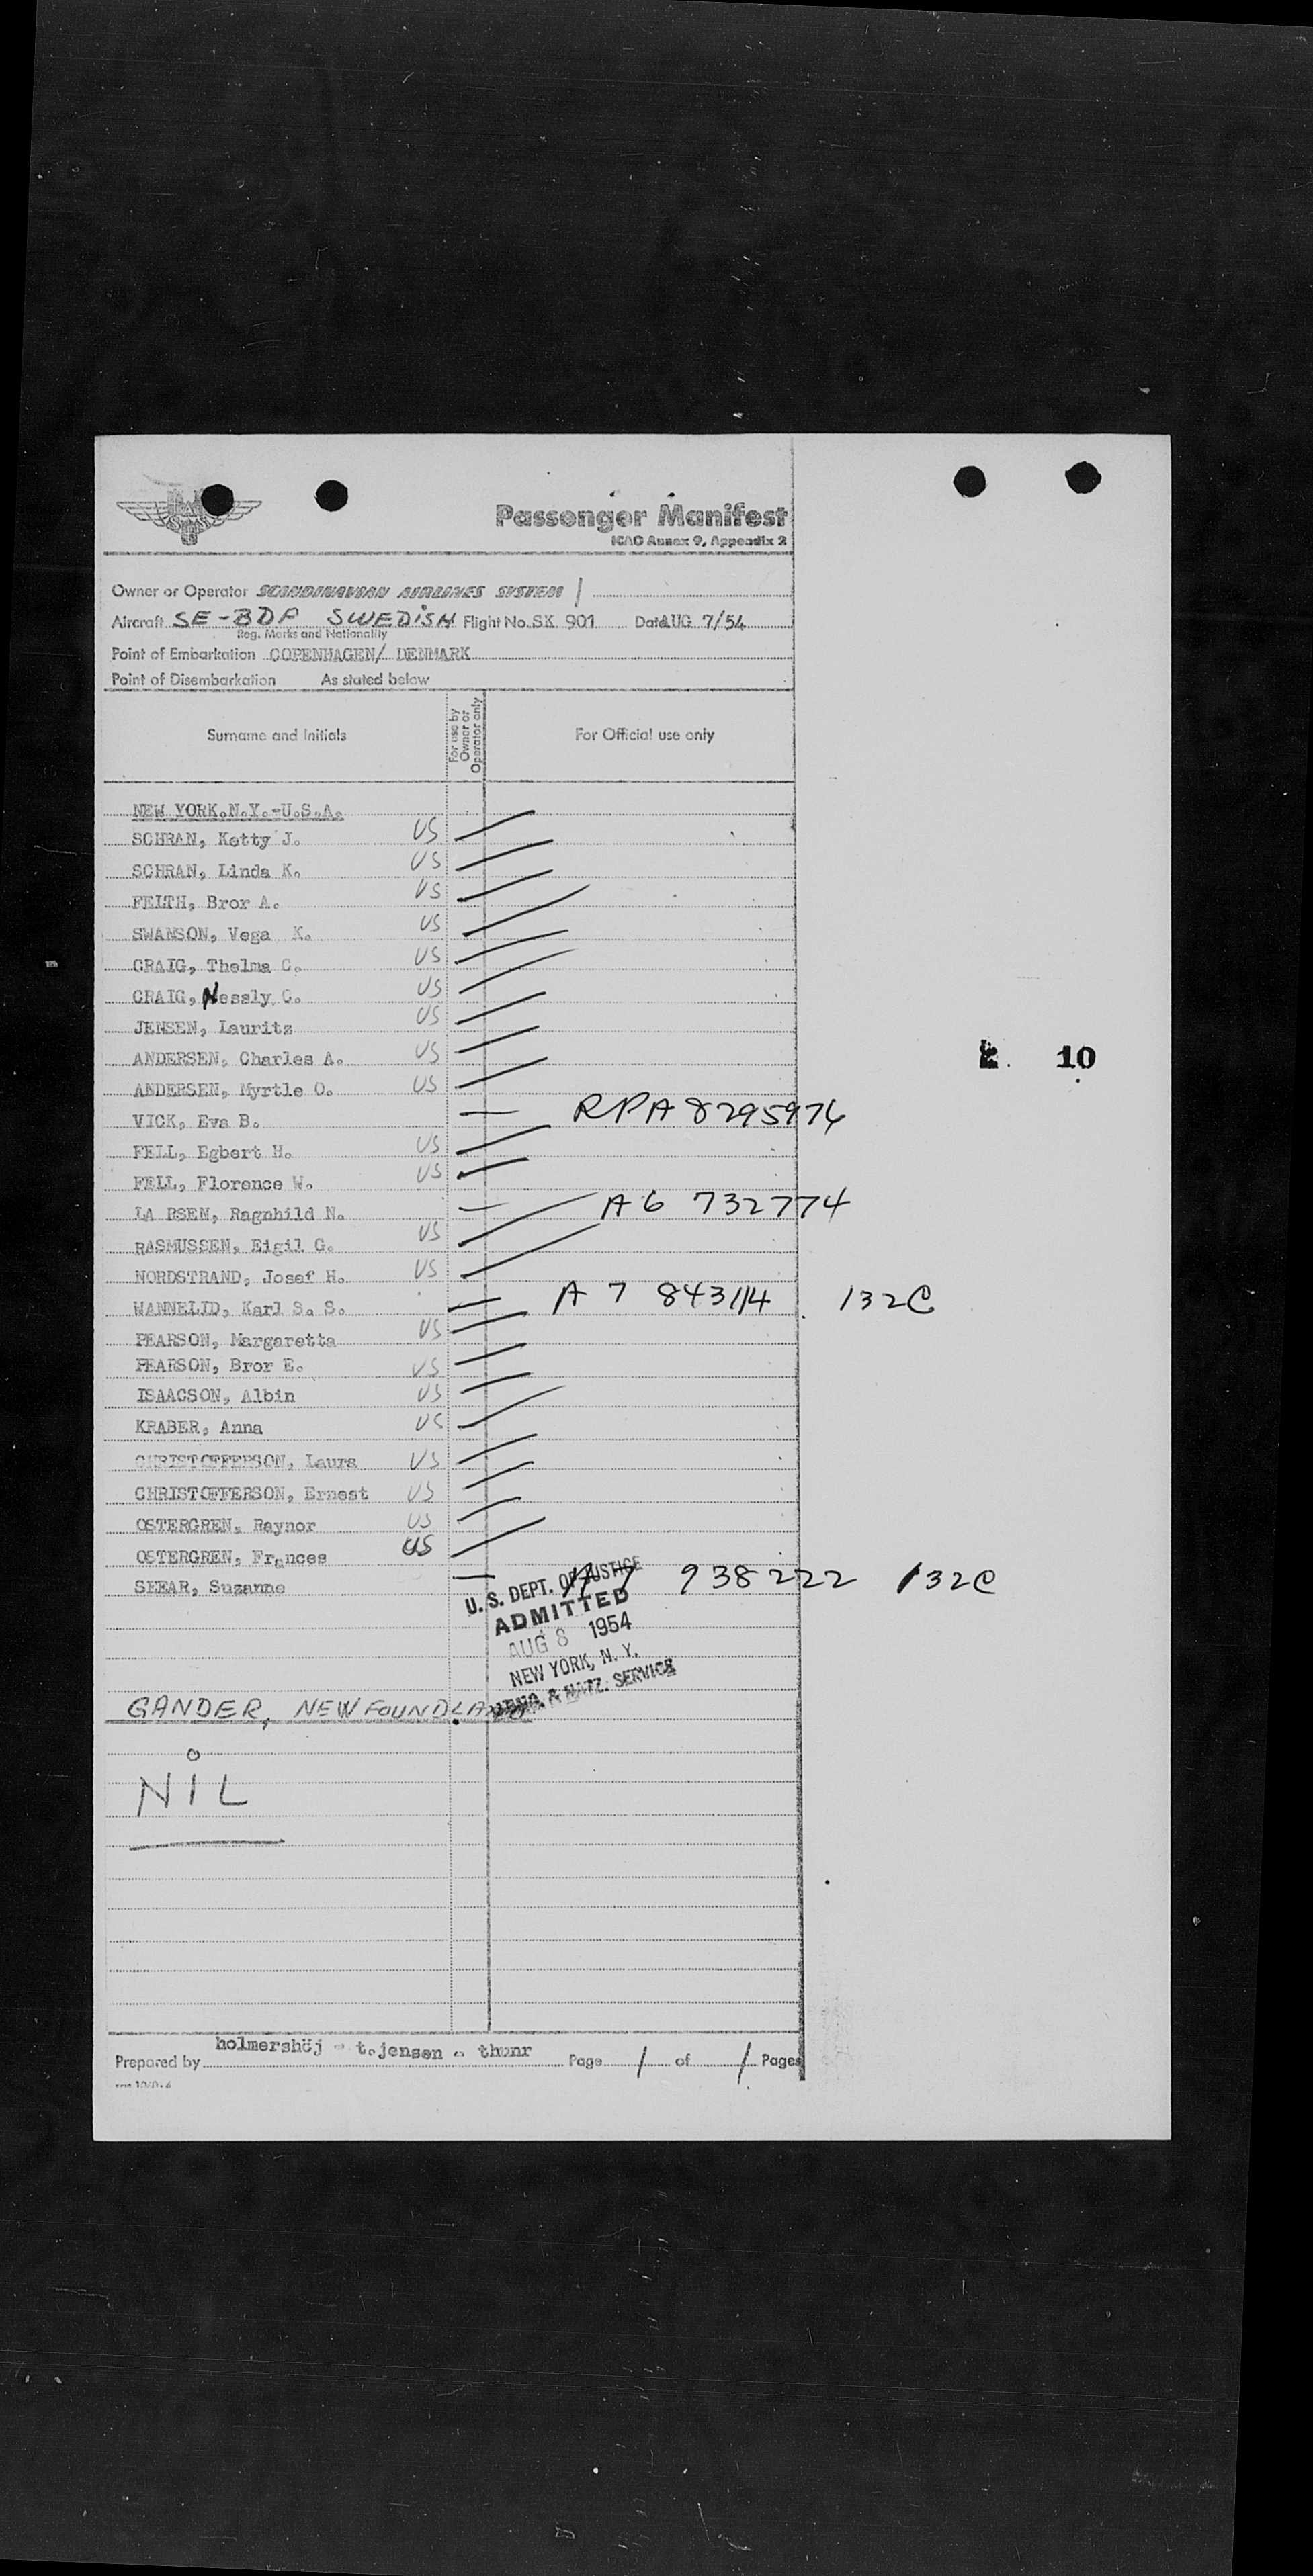 SAS
Passenger Manifest
ICAO Annex 9, Appendix 2
Owner or Operator SCANDINAVIAN AIRLINES SYSTEM /
Aircraft SE-BDP SWEDiSH Flight No. SK 901 Date AUG 7/54
Reg. Marks and Nationality
Point of Embarkation COPENHAGEN/ DENMARK
Point of Disembarkation As stated below
Surname and Initials For use by Owner or Operator only For Official use only
NEW YORK.N.Y.-U.S.A.
SCHRAN, Ketty J. US
SCHRAN, Linda K. US
FELTH, Bror A. US
SWANSON, Vega K. US
CRAIG, Thelma C. US
CRAIG, Nessly C. US
JENSEN, Laurits US
ANDERSEN, Charles A. US 10
ANDERSEN, Myrtle O. US
VICK, Eva B. RPA 8295976
FELL, Egbert H. US
FELL, Florence W. US
LA RSEN, Ragnhild N. A6 732774
RASMUSSEN, Eigil G. US
NORDSTRAND, Josef H. US
WANNELID, Karl S. S. A 7 843114 132C
PEARSON, Margaretta US
PEARSON, Bror E. US
ISAACSON, Albin US
KRABER, Anna US
CHRISTOFFERSON, Laura US
CHRISTOFFERSON, Ernest US
OSTERGREN, Raynor US
OSTERGREN, Frances US
SEEAR, Suzanne A 7 938222 132C
U. S. DEPT. OF JUSTICE
ADMITTED
AUG 8 1954
NEW YORK, N. Y.
IMMIG. & NATZ. SERVICE
GANDER, NEWFOUNDLAND
NiL
Prepared by holmershöj - t.jensen - thunr Page 1 of 1 Pages